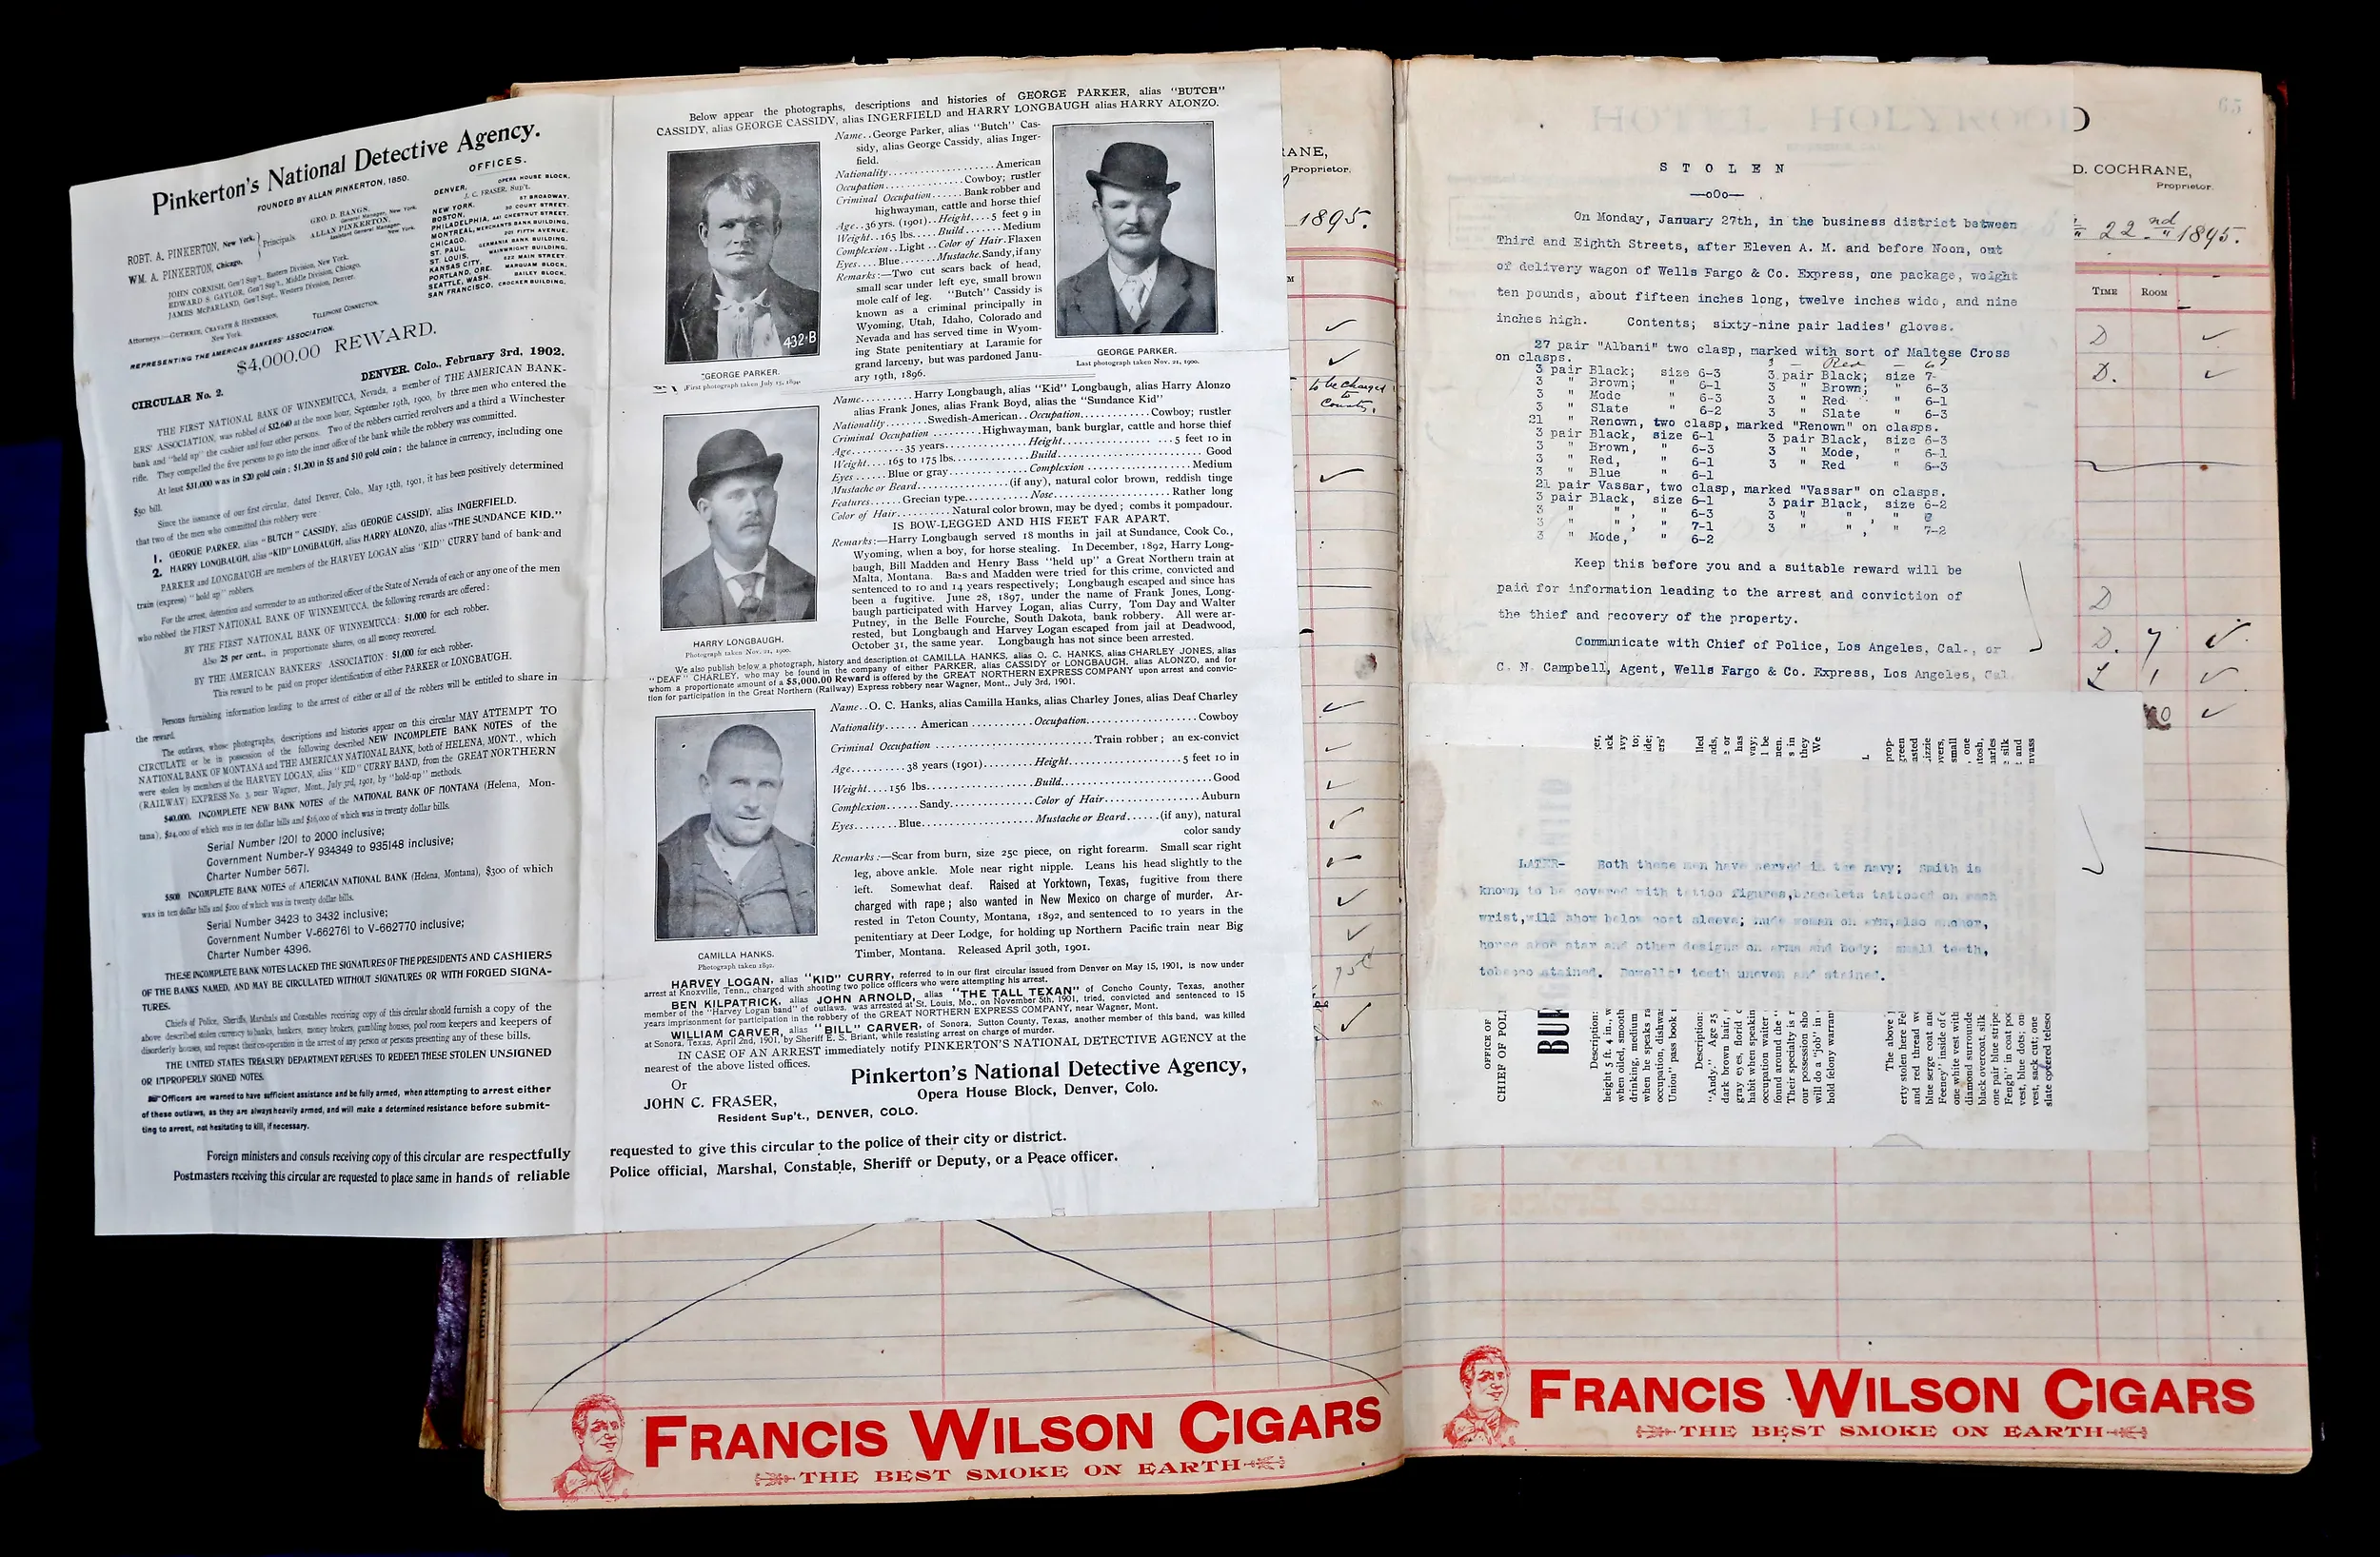 Pinkerton's National Detective Agency.
FOUNDED BY ALLAN PINKERTON, 1850.
OFFICES.
ROBT. A. PINKERTON, New York.
WM. A. PINKERTON, Chicago.
Principals.
GEO. D. BANGS,
General Manager, New York.
ALLAN PINKERTON,
Assistant General Manager
New York.
JOHN CORNISH, Gen'l Sup't., Eastern Division, New York.
EDWARD S. GAYLOR, Gen'l Sup't., Middle Division, Chicago.
JAMES McPARLAND, Gen'l Supt., Western Division, Denver.
Attorneys:—GUTHRIE, CRAVATH & HENDERSON,
New York.
TELEPHONE CONNECTION.
DENVER, OPERA HOUSE BLOCK,
J. C. FRASER, Sup't.
NEW YORK, 57 BROADWAY.
BOSTON, 30 COURT STREET.
PHILADELPHIA, 441 CHESTNUT STREET.
MONTREAL, MERCHANTS BANK BUILDING.
CHICAGO, 201 FIFTH AVENUE.
ST. PAUL, GERMANIA BANK BUILDING.
ST. LOUIS, WAINWRIGHT BUILDING.
KANSAS CITY, 622 MAIN STREET.
PORTLAND, ORE. MARQUAM BLOCK.
SEATTLE, WASH. BAILEY BLOCK.
SAN FRANCISCO, CROCKER BUILDING.
REPRESENTING THE AMERICAN BANKERS' ASSOCIATION.
$4,000.00 REWARD.
CIRCULAR No. 2.
DENVER, Colo., February 3rd, 1902.
THE FIRST NATIONAL BANK OF WINNEMUCCA, Nevada, a member of THE AMERICAN BANK-
ERS' ASSOCIATION, was robbed of $32,640 at the noon hour, September 19th, 1900, by three men who entered the
bank and "held up" the cashier and four other persons. Two of the robbers carried revolvers and a third a Winchester
rifle. They compelled the five persons to go into the inner office of the bank while the robbery was committed.
At least $31,000 was in $20 gold coin; $1,200 in $5 and $10 gold coin; the balance in currency, including one
$50 bill.
Since the issuance of our first circular, dated Denver, Colo., May 15th, 1901, it has been positively determined
that two of the men who committed this robbery were:
1. GEORGE PARKER, alias "BUTCH" CASSIDY, alias GEORGE CASSIDY, alias INGERFIELD.
2. HARRY LONGBAUGH, alias "KID" LONGBAUGH, alias HARRY ALONZO, alias "THE SUNDANCE KID."
PARKER and LONGBAUGH are members of the HARVEY LOGAN alias "KID" CURRY band of bank and
train (express) "hold up" robbers.
For the arrest, detention and surrender to an authorized officer of the State of Nevada of each or any one of the men
who robbed the FIRST NATIONAL BANK OF WINNEMUCCA, the following rewards are offered:
BY THE FIRST NATIONAL BANK OF WINNEMUCCA: $1,000 for each robber.
Also 25 per cent., in proportionate shares, on all money recovered.
BY THE AMERICAN BANKERS' ASSOCIATION: $1,000 for each robber.
This reward to be paid on proper identification of either PARKER or LONGBAUGH.
Persons furnishing information leading to the arrest of either or all of the robbers will be entitled to share in
the reward.
The outlaws, whose photographs, descriptions and histories appear on this circular MAY ATTEMPT TO
CIRCULATE or be in possession of the following described NEW INCOMPLETE BANK NOTES of the
NATIONAL BANK OF MONTANA and THE AMERICAN NATIONAL BANK, both of HELENA, MONT., which
were stolen by members of the HARVEY LOGAN, alias "KID" CURRY BAND, from the GREAT NORTHERN
(RAILWAY) EXPRESS No. 3, near Wagner, Mont., July 3rd, 1901, by "hold-up" methods.
$40,000. INCOMPLETE NEW BANK NOTES of the NATIONAL BANK OF MONTANA (Helena, Mon-
tana), $24,000 of which was in ten dollar bills and $16,000 of which was in twenty dollar bills.
Serial Number 1201 to 2000 inclusive;
Government Number-Y 934349 to 935148 inclusive;
Charter Number 5671.
$500 INCOMPLETE BANK NOTES of AMERICAN NATIONAL BANK (Helena, Montana), $300 of which
was in ten dollar bills and $200 of which was in twenty dollar bills.
Serial Number 3423 to 3432 inclusive;
Government Number V-662761 to V-662770 inclusive;
Charter Number 4396.
THESE INCOMPLETE BANK NOTES LACKED THE SIGNATURES OF THE PRESIDENTS AND CASHIERS
OF THE BANKS NAMED, AND MAY BE CIRCULATED WITHOUT SIGNATURES OR WITH FORGED SIGNA-
TURES.
Chiefs of Police, Sheriffs, Marshals and Constables receiving copy of this circular should furnish a copy of the
above described stolen currency to banks, bankers, money brokers, gambling houses, pool room keepers and keepers of
disorderly houses, and request their co-operation in the arrest of any person or persons presenting any of these bills.
THE UNITED STATES TREASURY DEPARTMENT REFUSES TO REDEEM THESE STOLEN UNSIGNED
OR IMPROPERLY SIGNED NOTES.
Officers are warned to have sufficient assistance and be fully armed, when attempting to arrest either
of these outlaws, as they are always heavily armed, and will make a determined resistance before submit-
ting to arrest, not hesitating to kill, if necessary.
Foreign ministers and consuls receiving copy of this circular are respectfully
Postmasters receiving this circular are requested to place same in hands of reliable
Below appear the photographs, descriptions and histories of GEORGE PARKER, alias "BUTCH"
CASSIDY, alias GEORGE CASSIDY, alias INGERFIELD and HARRY LONGBAUGH alias HARRY ALONZO.
432·B
GEORGE PARKER.
First photograph taken July 15, 1894.
Name..George Parker, alias "Butch" Cas-
sidy, alias George Cassidy, alias Inger-
field.
Nationality....................American
Occupation..............Cowboy; rustler
Criminal Occupation.....Bank robber and
highwayman, cattle and horse thief
Age..36 yrs. (1901)..Height....5 feet 9 in
Weight..165 lbs....Build.......Medium
Complexion..Light..Color of Hair.Flaxen
Eyes....Blue.......Mustache.Sandy, if any
Remarks:—Two cut scars back of head,
small scar under left eye, small brown
mole calf of leg. "Butch" Cassidy is
known as a criminal principally in
Wyoming, Utah, Idaho, Colorado and
Nevada and has served time in Wyom-
ing State penitentiary at Laramie for
grand larceny, but was pardoned Janu-
ary 19th, 1896.
GEORGE PARKER.
Last photograph taken Nov. 21, 1900.
HARRY LONGBAUGH.
Photograph taken Nov. 21, 1900.
Name..........Harry Longbaugh, alias "Kid" Longbaugh, alias Harry Alonzo
alias Frank Jones, alias Frank Boyd, alias the "Sundance Kid"
Nationality........Swedish-American..Occupation............Cowboy; rustler
Criminal Occupation.........Highwayman, bank burglar, cattle and horse thief
Age..........35 years...............Height..................5 feet 10 in
Weight....165 to 175 lbs............Build........................Good
Eyes.......Blue or gray.............Complexion.................Medium
Mustache or Beard...............(if any), natural color brown, reddish tinge
Features.........Grecian type............Nose.................Rather long
Color of Hair..........Natural color brown, may be dyed; combs it pompadour.
IS BOW-LEGGED AND HIS FEET FAR APART.
Remarks:—Harry Longbaugh served 18 months in jail at Sundance, Cook Co.,
Wyoming, when a boy, for horse stealing. In December, 1892, Harry Long-
baugh, Bill Madden and Henry Bass "held up" a Great Northern train at
Malta, Montana. Bass and Madden were tried for this crime, convicted and
sentenced to 10 and 14 years respectively; Longbaugh escaped and since has
been a fugitive. June 28, 1897, under the name of Frank Jones, Long-
baugh participated with Harvey Logan, alias Curry, Tom Day and Walter
Putney, in the Belle Fourche, South Dakota, bank robbery. All were ar-
rested, but Longbaugh and Harvey Logan escaped from jail at Deadwood,
October 31, the same year. Longbaugh has not since been arrested.
We also publish below a photograph, history and description of CAMILLA HANKS, alias O. C. HANKS, alias CHARLEY JONES, alias
"DEAF" CHARLEY, who may be found in the company of either PARKER, alias CASSIDY or LONGBAUGH, alias ALONZO, and for
whom a proportionate amount of a $5,000.00 Reward is offered by the GREAT NORTHERN EXPRESS COMPANY upon arrest and convic-
tion for participation in the Great Northern (Railway) Express robbery near Wagner, Mont., July 3rd, 1901.
CAMILLA HANKS.
Photograph taken 1892.
Name..O. C. Hanks, alias Camilla Hanks, alias Charley Jones, alias Deaf Charley
Nationality......American...........Occupation....................Cowboy
Criminal Occupation.........................Train robber; an ex-convict
Age..........38 years (1901).........Height....................5 feet 10 in
Weight....156 lbs...................Build........................Good
Complexion......Sandy...............Color of Hair................Auburn
Eyes........Blue....................Mustache or Beard......(if any), natural
color sandy
Remarks:—Scar from burn, size 25c piece, on right forearm. Small scar right
leg, above ankle. Mole near right nipple. Leans his head slightly to the
left. Somewhat deaf. Raised at Yorktown, Texas, fugitive from there
charged with rape; also wanted in New Mexico on charge of murder. Ar-
rested in Teton County, Montana, 1892, and sentenced to 10 years in the
penitentiary at Deer Lodge, for holding up Northern Pacific train near Big
Timber, Montana. Released April 30th, 1901.
HARVEY LOGAN, alias "KID" CURRY, referred to in our first circular issued from Denver on May 15, 1901, is now under
arrest at Knoxville, Tenn., charged with shooting two police officers who were attempting his arrest.
BEN KILPATRICK, alias JOHN ARNOLD, alias "THE TALL TEXAN" of Concho County, Texas, another
member of the "Harvey Logan band" of outlaws, was arrested at St. Louis, Mo., on November 5th, 1901, tried, convicted and sentenced to 15
years imprisonment for participation in the robbery of the GREAT NORTHERN EXPRESS COMPANY, near Wagner, Mont.
WILLIAM CARVER, alias "BILL" CARVER, of Sonora, Sutton County, Texas, another member of this band, was killed
at Sonora, Texas, April 2nd, 1901, by Sheriff E. S. Briant, while resisting arrest on charge of murder.
IN CASE OF AN ARREST immediately notify PINKERTON'S NATIONAL DETECTIVE AGENCY at the
nearest of the above listed offices.
Pinkerton's National Detective Agency,
Opera House Block, Denver, Colo.
Or
JOHN C. FRASER,
Resident Sup't., DENVER, COLO.
requested to give this circular to the police of their city or district.
Police official, Marshal, Constable, Sheriff or Deputy, or a Peace officer.
RANE,
Proprietor.
1895.
to be charged
to
County.
75¢
FRANCIS WILSON CIGARS
THE BEST SMOKE ON EARTH
HOTEL HOLYROOD
65
D. COCHRANE,
Proprietor.
22nd 1895.
TIME ROOM
D
D.
D
D. 7
L 1
STOLEN
—oOo—
On Monday, January 27th, in the business district between
Third and Eighth Streets, after Eleven A. M. and before Noon, out
of delivery wagon of Wells Fargo & Co. Express, one package, weight
ten pounds, about fifteen inches long, twelve inches wide, and nine
inches high. Contents; sixty-nine pair ladies' gloves.
27 pair "Albani" two clasp, marked with sort of Maltese Cross
on clasps. 3 Red - 6?
3 pair Black; size 6-3 3 pair Black; size 7-
3 " Brown; " 6-1 3 " Brown; " 6-3
3 " Mode " 6-3 3 " Red " 6-1
3 " Slate " 6-2 3 " Slate " 6-3
21 Renown, two clasp, marked "Renown" on clasps.
3 pair Black, size 6-1 3 pair Black, size 6-3
3 " Brown, " 6-3 3 " Mode, " 6-1
3 " Red, " 6-1 3 " Red " 6-3
3 " Blue " 6-1
21 pair Vassar, two clasp, marked "Vassar" on clasps.
3 pair Black, size 6-1 3 pair Black, size 6-2
3 " " , " 6-3 3 " " , "
3 " " , " 7-1 3 " " , " 7-2
3 " Mode, " 6-2
Keep this before you and a suitable reward will be
paid for information leading to the arrest and conviction of
the thief and recovery of the property.
Communicate with Chief of Police, Los Angeles, Cal., or
C. N. Campbell, Agent, Wells Fargo & Co. Express, Los Angeles, Cal.
LATER- Both these men have served in the navy; Smith is
known to be covered with tattoo figures, bracelets tattooed on each
wrist, will show below coat sleeve; nude woman on arm, also anchor,
horse shoe star and other designs on arms and body; small teeth,
tobacco stained. Powells' teeth uneven and stained.
OFFICE OF
CHIEF OF POLI
BUR
Description:
height 5 ft. 4 in., w
when oiled, smooth
drinking, medium
when he speaks ra
occupation, dishwa
Union" pass book
Description:
"Andy." Age 25
dark brown hair,
gray eyes, florid c
habit when speakin
occupation waiter
found around the "
Their specialty is r
our possession sho
will do a "job" in
hold felony warran
The above
erty stolen here Fe
and red thread w
blue serge coat an
Feeney" inside of c
one white vest with
diamond surrounde
black overcoat, silk
one pair blue stripe
Fengh" in coat poc
vest, blue dots; on
vest, sack cut; one
slate covered telesc
FRANCIS WILSON CIGARS
THE BEST SMOKE ON EARTH